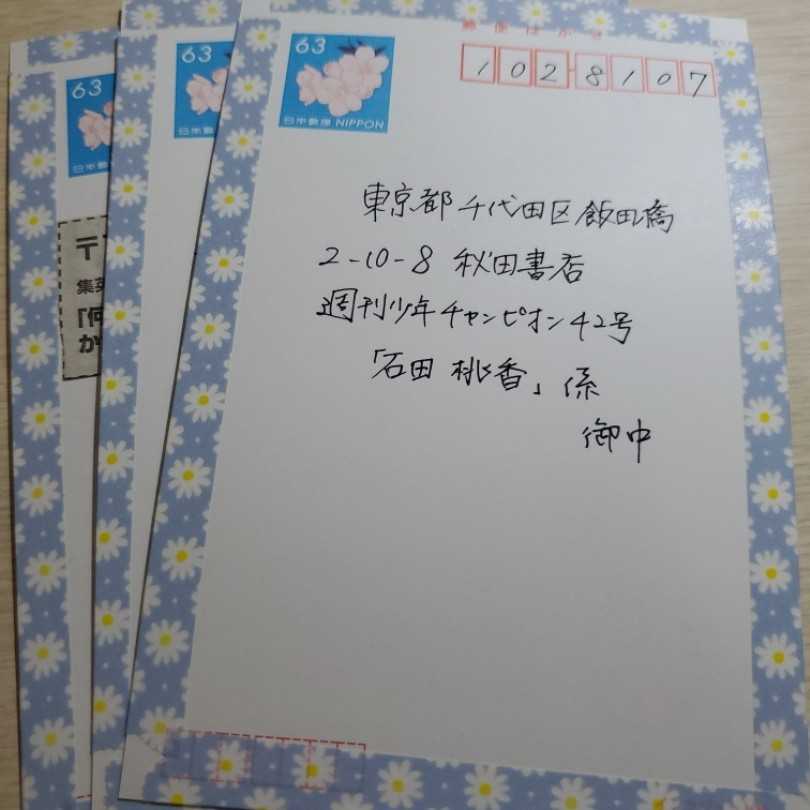 郵便はがき
63
日本郵便 NIPPON
1028107
東京都千代田区飯田橋
2-10-8 秋田書店
週刊少年チャンピオン42号
「石田 桃香」係
御中
63
日本郵便
63
日本郵便
〒
集英
「何
か